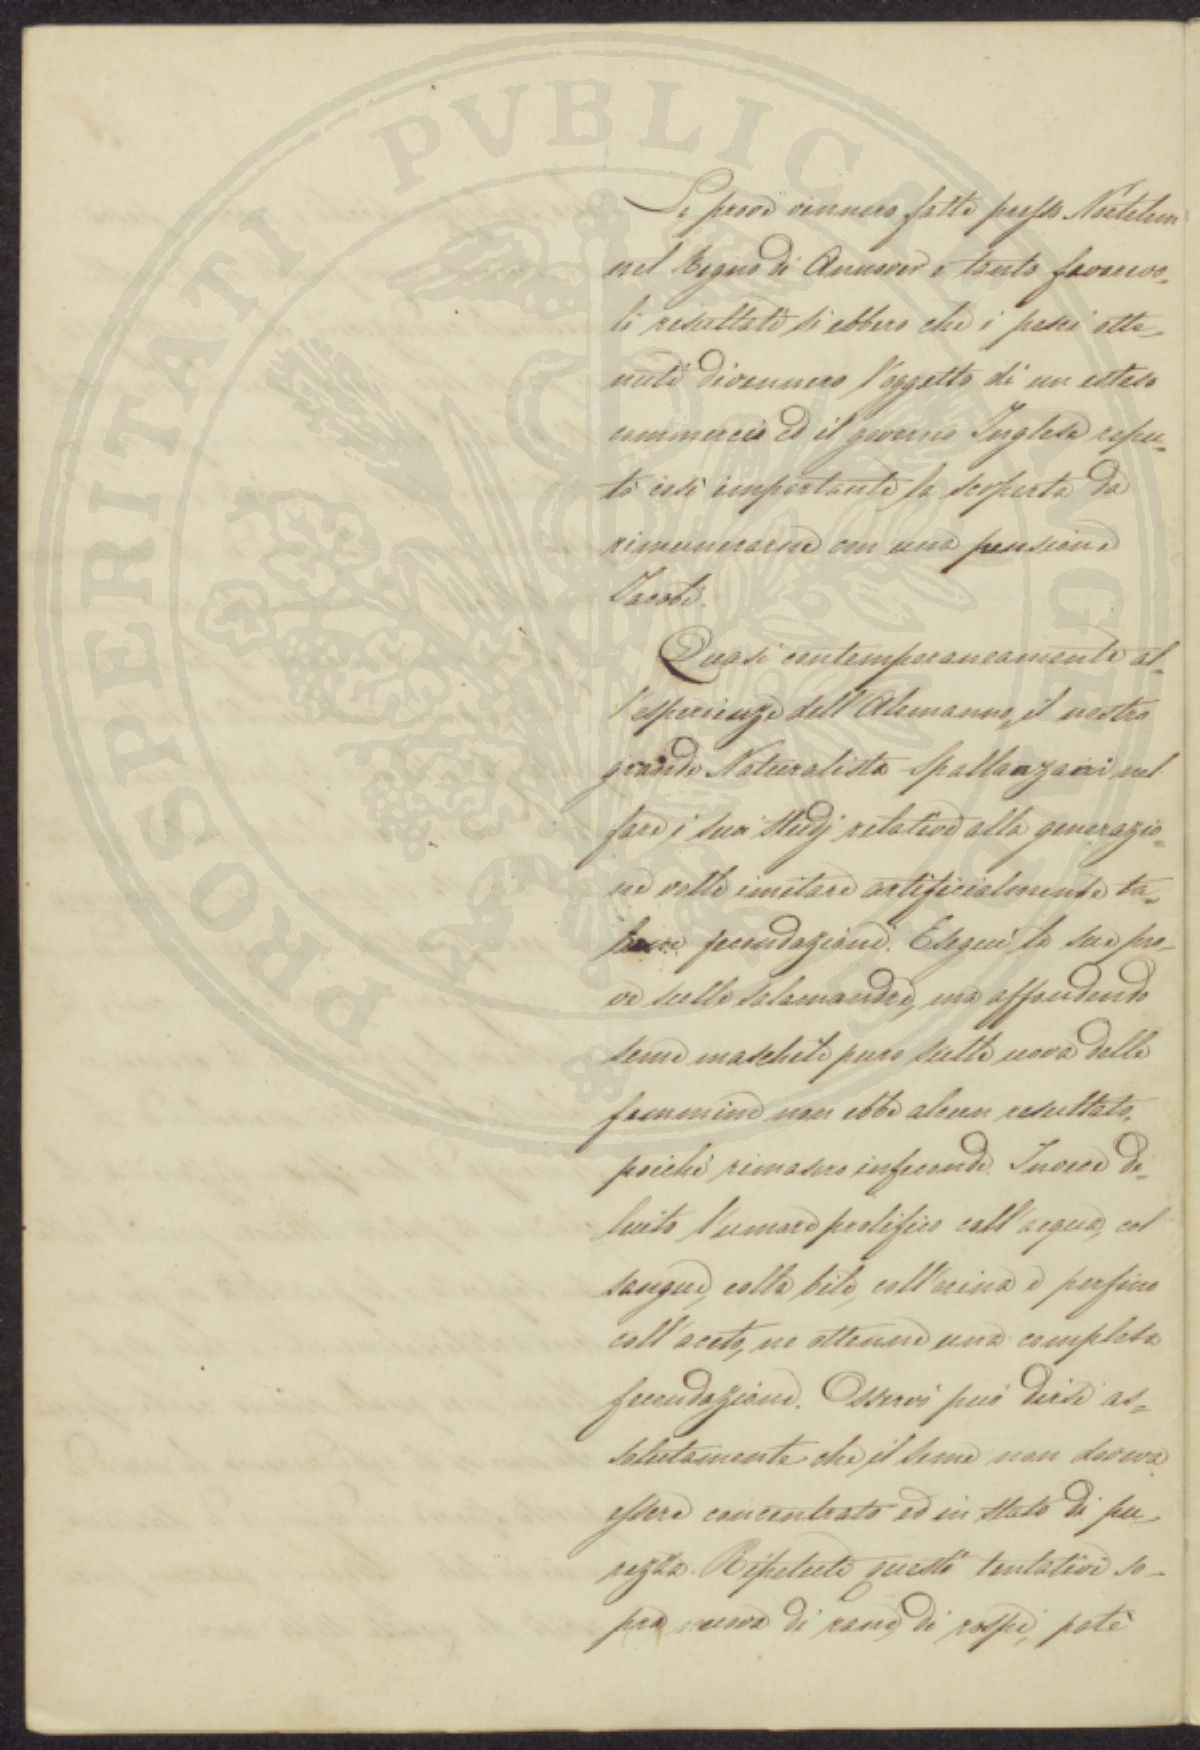 Le prove vennero fatte presso Nortelem
nel Regno di Annover e tanto favorevo-
li resultati si ebbero che i pesci otte-
nuti divennero l'oggetto di un esteso
commercio ed il governo Inglese repu-
tò così importante la scoperta da
rimunerarne con una pensione
Jacobi.
Quasi contemporaneamente al-
l'esperienze dell'Alemanno, il nostro
grande Naturalista Spallanzani nel
fare i suoi studj relativi alla generazio-
ne volle imitare artificialmente ta-
fecondazioni. Eseguì le sue pro-
ve sulle salamandre, ma affondendo
seme maschile puro sulle uova delle
femmine non ebbe alcun resultato,
poichè rimasero infeconde. Invece di-
luito l'umore prolifico coll'acqua, col
sangue, colla bile, coll'orina e perfino
coll'aceto, ne ottenne una completa
fecondazione. Osservò può dirsi as-
solutamente che il seme non doveva
essere concentrato ed in stato di pu-
rezza. Ripetute questi tentativi so-
pra uova di rane, di rospi, potè
PROSPERITATI PVBLICAE AVGENDAE